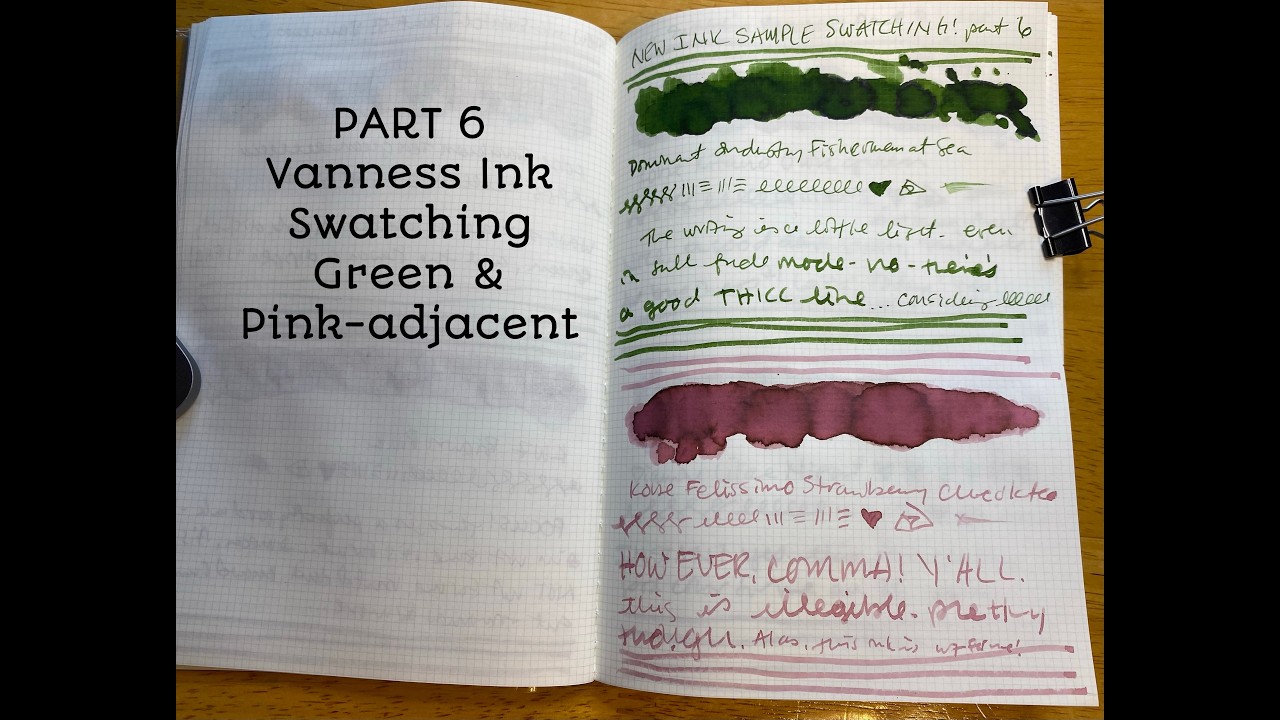 PART 6
Vanness Ink
Swatching
Green &
Pink-adjacent
NEW INK SAMPLE SWATCHING! part 6
Dominant Industry Fisherman at Sea
The writing is a little light. even
in full fude mode- no - there's
a good THICC line... considering
Kobe Felissimo Strawberry
HOWEVER, COMMA! Y'ALL.
this is illegible. pretty
though. Alas, this ink is